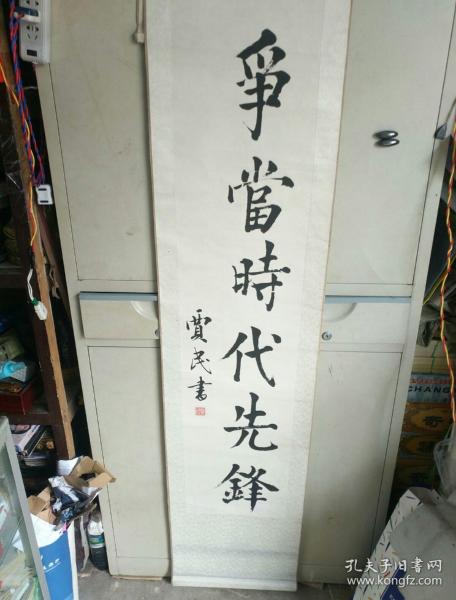 爭當時代先鋒
賈民書
CHANG
孔夫子旧书网
www.kongfz.com